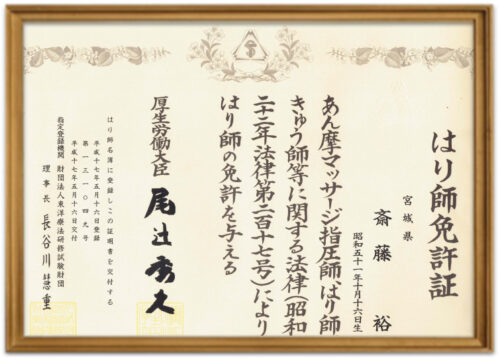 はり師免許証
宮城県
斎藤 裕
昭和五十一年十月十六日生
あん摩マッサージ指圧師、はり師
きゅう師等に関する法律(昭和
二十二年法律第二百十七号)により
はり師の免許を与える
厚生労働大臣 尾辻秀久
はり師名簿に登録しこの証明書を交付する
平成十七年五月十六日登録
第一四三一〇四九号
平成十七年五月十六日交付
指定登録機関 財団法人東洋療法研修試験財団
理事長 長谷川慧重